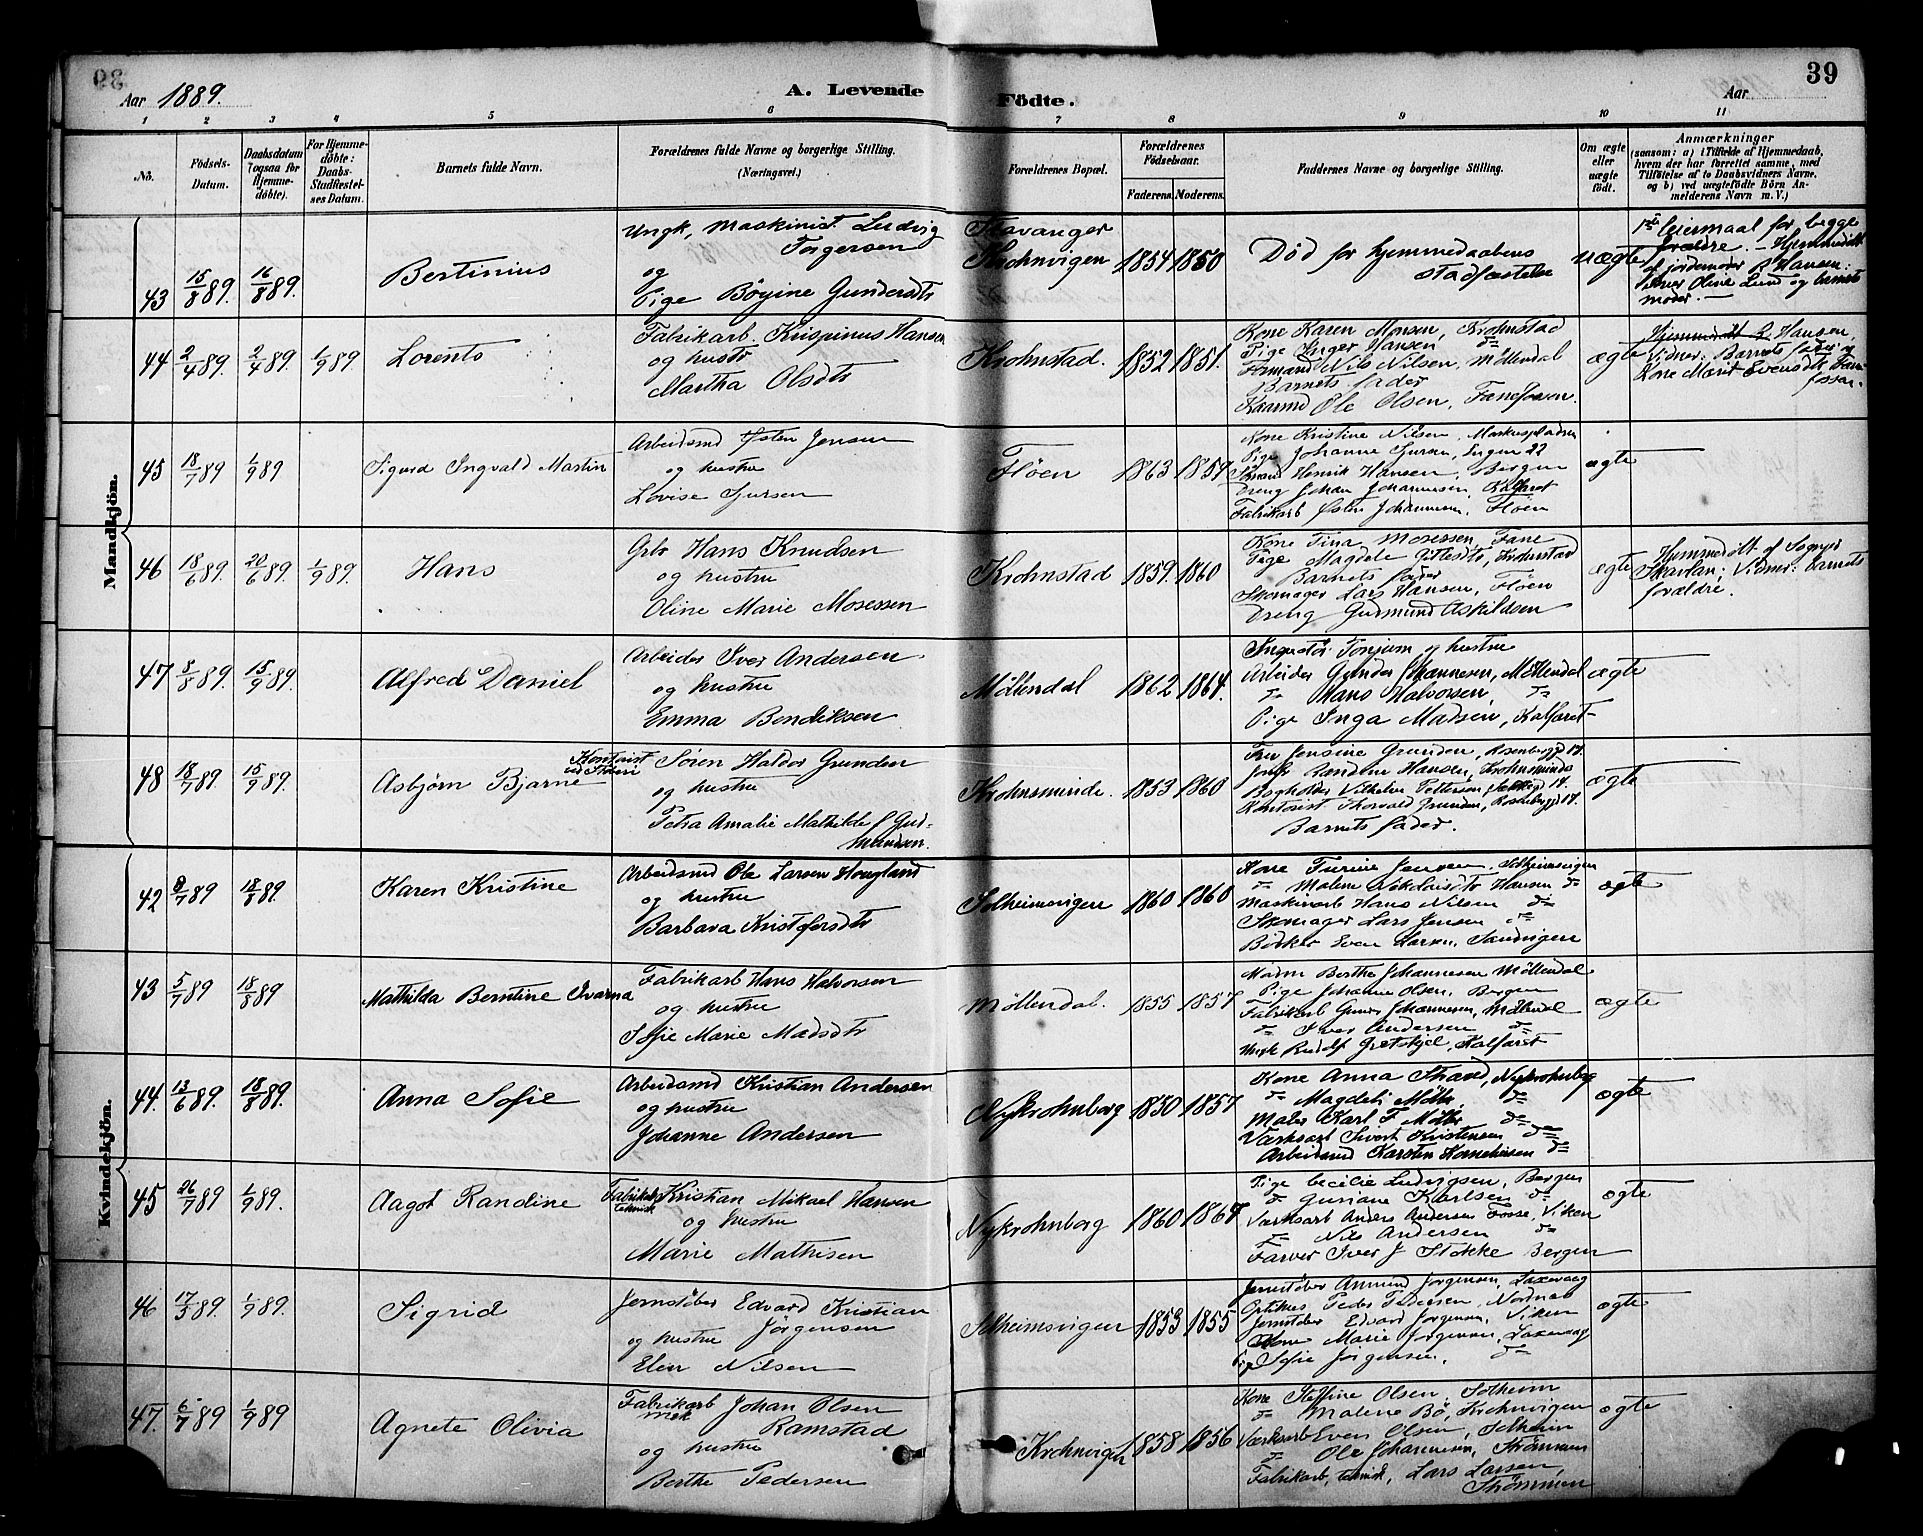 39
Aar 1889.
A. Levende Födte.
Aar
1 2 3 4 5 6 7 8 9 10 11
No.
Födsels-Datum.
Daabsdatum (ogsaa for Hjemmedöbte).
For Hjemmedöbte: Daabs-Stadfæstelses Datum.
Barnets fulde Navn.
Forældrenes fulde Navne og borgerlige Stilling.
(Næringsvei.)
Forældrenes Bopæl.
Forældrenes Födselsaar.
Faderens. Moderens.
Faddernes Navne og borgerlige Stilling.
Om ægte eller uægte födt.
Anmærkninger
(saasom: a) i Tilfælde af Hjemmedaab,
hvem der har forrettet samme, med
Tilföielse af to Daabsvidners Navne,
og b) ved uægtefödte Börn An-
melderens Navn m. V.)
Mandkjön.
43 15/8 89. 16/8 89. Bertinius
Ungk, Maskinist Ludvig
Torgersen
og
Pige Börine Gundersdtr
Stavanger
Krohnvigen 1854 1850
Död for hjemmedaabens
stadfæstelse
uægte
1ste leiermaal for begge
forældre. Hjemmedöbt
af jordemoder Hansen:
Vidner Oline Lund og barnets
moder.
44 2/4 89. 2/4 89. 1/9 89. Lorents
Fabrikarb. Krispinus Hansen
og hustr
Martha Olsdtr
Krohnstad. 1852 1851.
Kone Karen Monsen, Krohnstad
Pige Inger Hansen do
Formand Nils Nilsen, Möllendal
Barnets fader
Kaarmd Ole Olsen, Fanefossen.
ægte
Hjemmedöbt Hansen,
Vidner: Barnets fader og
Kone Marit Evensdtr Fane-
fossen.
45 18/7 89 1/9 89 Sigurd Ingvald Martin
Arbeidsmd Østen Jensen
og hustru
Lovise Sjursen
Flöen 1863 1854
Kone Kristine Nilsen, Markuspladsen
Pige Johanne Sjursen, Engen 22
Henrik Hansen, Bergen
Dreng Johan Johannesen, Kalfaret
Fabrikarb Østen Johannesen, Flöen
ægte
46 18/6 89. 20/6 89. 1/9 89. Hans
Grbr Hans Knudsen
og hustru
Oline Marie Mosessen
Krohnstad 1859. 1860
Kone Tina Mosessen, Fane
Pige Magdele Gitlesdtr, Krohnstad
Barnets fader
Skomager Lars Hansen, Flöen
Dreng Gudmund Askildsen
ægte
Hjemmedöbt af Sognepr
Skarlan; Vidner: barnets
forældre.
47 8/8 89. 15/9 89. Alfred Daniel
Arbeider Iver Andersen
og hustru
Emma Bendiksen
Möllendal 1862 1864.
Tonjum og hustru
Arbeider Gunder Johannesen, Möllendal
do Hans Halvorsen do
Pige Inga Madsen, Kalfaret
ægte
48 18/7 89. 15/9 89. Asbjørn Bjarne
Kontorist Sören Haldor Grunden
og hustru
Petra Amalie Mathilde f Gud-
mundsen.
Krohnsminde. 1853 1860
Fru Jensine Grunden, Rosenbergd 17.
Jomfr Randine Hansen, Krohnsminde
Bogholder Vilhelm Pettersen 14.
Kontorist Thorvald Grunden, Rosenbergd 17.
Barnets fader.
ægte
Kvindekjön.
42 8/7 89 18/8 89. Karen Kristine
Arbeidsmd Ole Larsen Hougland
og hustru
Barbara Kristofersdtr
Solheimsvigen 1860 1860
Kone Turine Jensen, Solheimsvigen
do Malene Nikolaisdtr Hansen do
Maskinarb Hans Nilsen do
Skomager Lars Jensen do
Bödker Even Larsen, Sandvigen
ægte
43 5/7 89 18/8 89 Mathilda Berntine Ivarna
Fabrikarb Hans Halvorsen
og hustru
Sofie Marie Madsdtr
Möllendal. 1855 1857
Madm Berthe Johannesen Möllendal
Pige Johanne Olsen, Bergen
Fabrikarb Gunder Johannesen, Möllendal
do Iver Andersen do
Ungk Rudolf Kalfaret
ægte
44. 13/6 89. 18/8 89. Anna Sofie
Arbeidsmd Kristian Andersen
og hustru
Johanne Andersen
Nykrohnborg 1850 1857
Kone Anna Strand, Nykrohnborg
do Magdeli Möller do
Maler Karl F Möller do
Værksarb Sivert Kristensen do
Arbeidsmd Karsten Korneliussen do
ægte
45 26/7 89 1/9 89. Aagot Randine
Kristian Mikael Hansen
og hustru
Marie Mathisen
Nykrohnborg 1860 1864
Pige Cecilie Ludvigsen, Bergen
do Guriane Karlsen do
Værksarb Anders Andersen Fosse, Viken
do Nils Andersen do
Farver Iver J Stokke Bergen
ægte
46 17/5 89. 1/9 89. Sigrid
Jernstöber Edvard Kristian
Jörgensen
og hustru
Elen Nilsen
Solheimsvigen 1853 1855
Jernstöber Anmund Jörgensen, Laxevaag
Optikus Peder Pedersen, Nordnæs
Jernstöber Edvard Jörgensen, Viken
Kone Marie Jörgensen, Laxevaag
Pige Sofie Jörgensen, do
ægte
47. 6/7 89 1/9 89 Agnete Olivia
Fabrikarb Johan Olsen
Ramstad
og hustru
Berthe Pedersen
Krohnvigen 1858 1856
Kone Steffine Olsen, Solheim
do Malene Bö, Krohnvigen
Værksarb Even Olsen, Solheim
do Ole Johannesen, Strömmen
Fabrikarb, Lars Larsen,
Strömmen
ægte